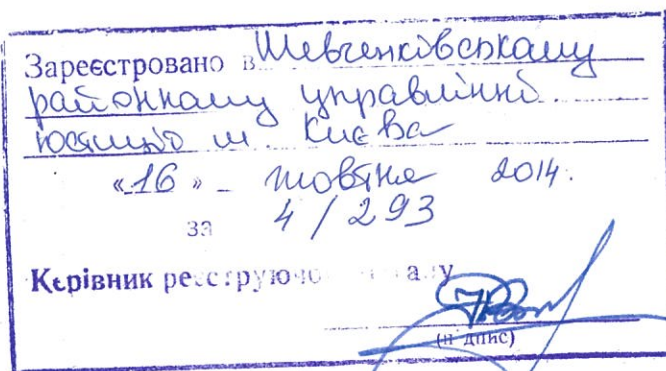 Зареєстровано в Шевченківському
районному управлінні
юстиції м. Києва
«16» жовтня 2014.
за 4/293
Керівник
(підпис)